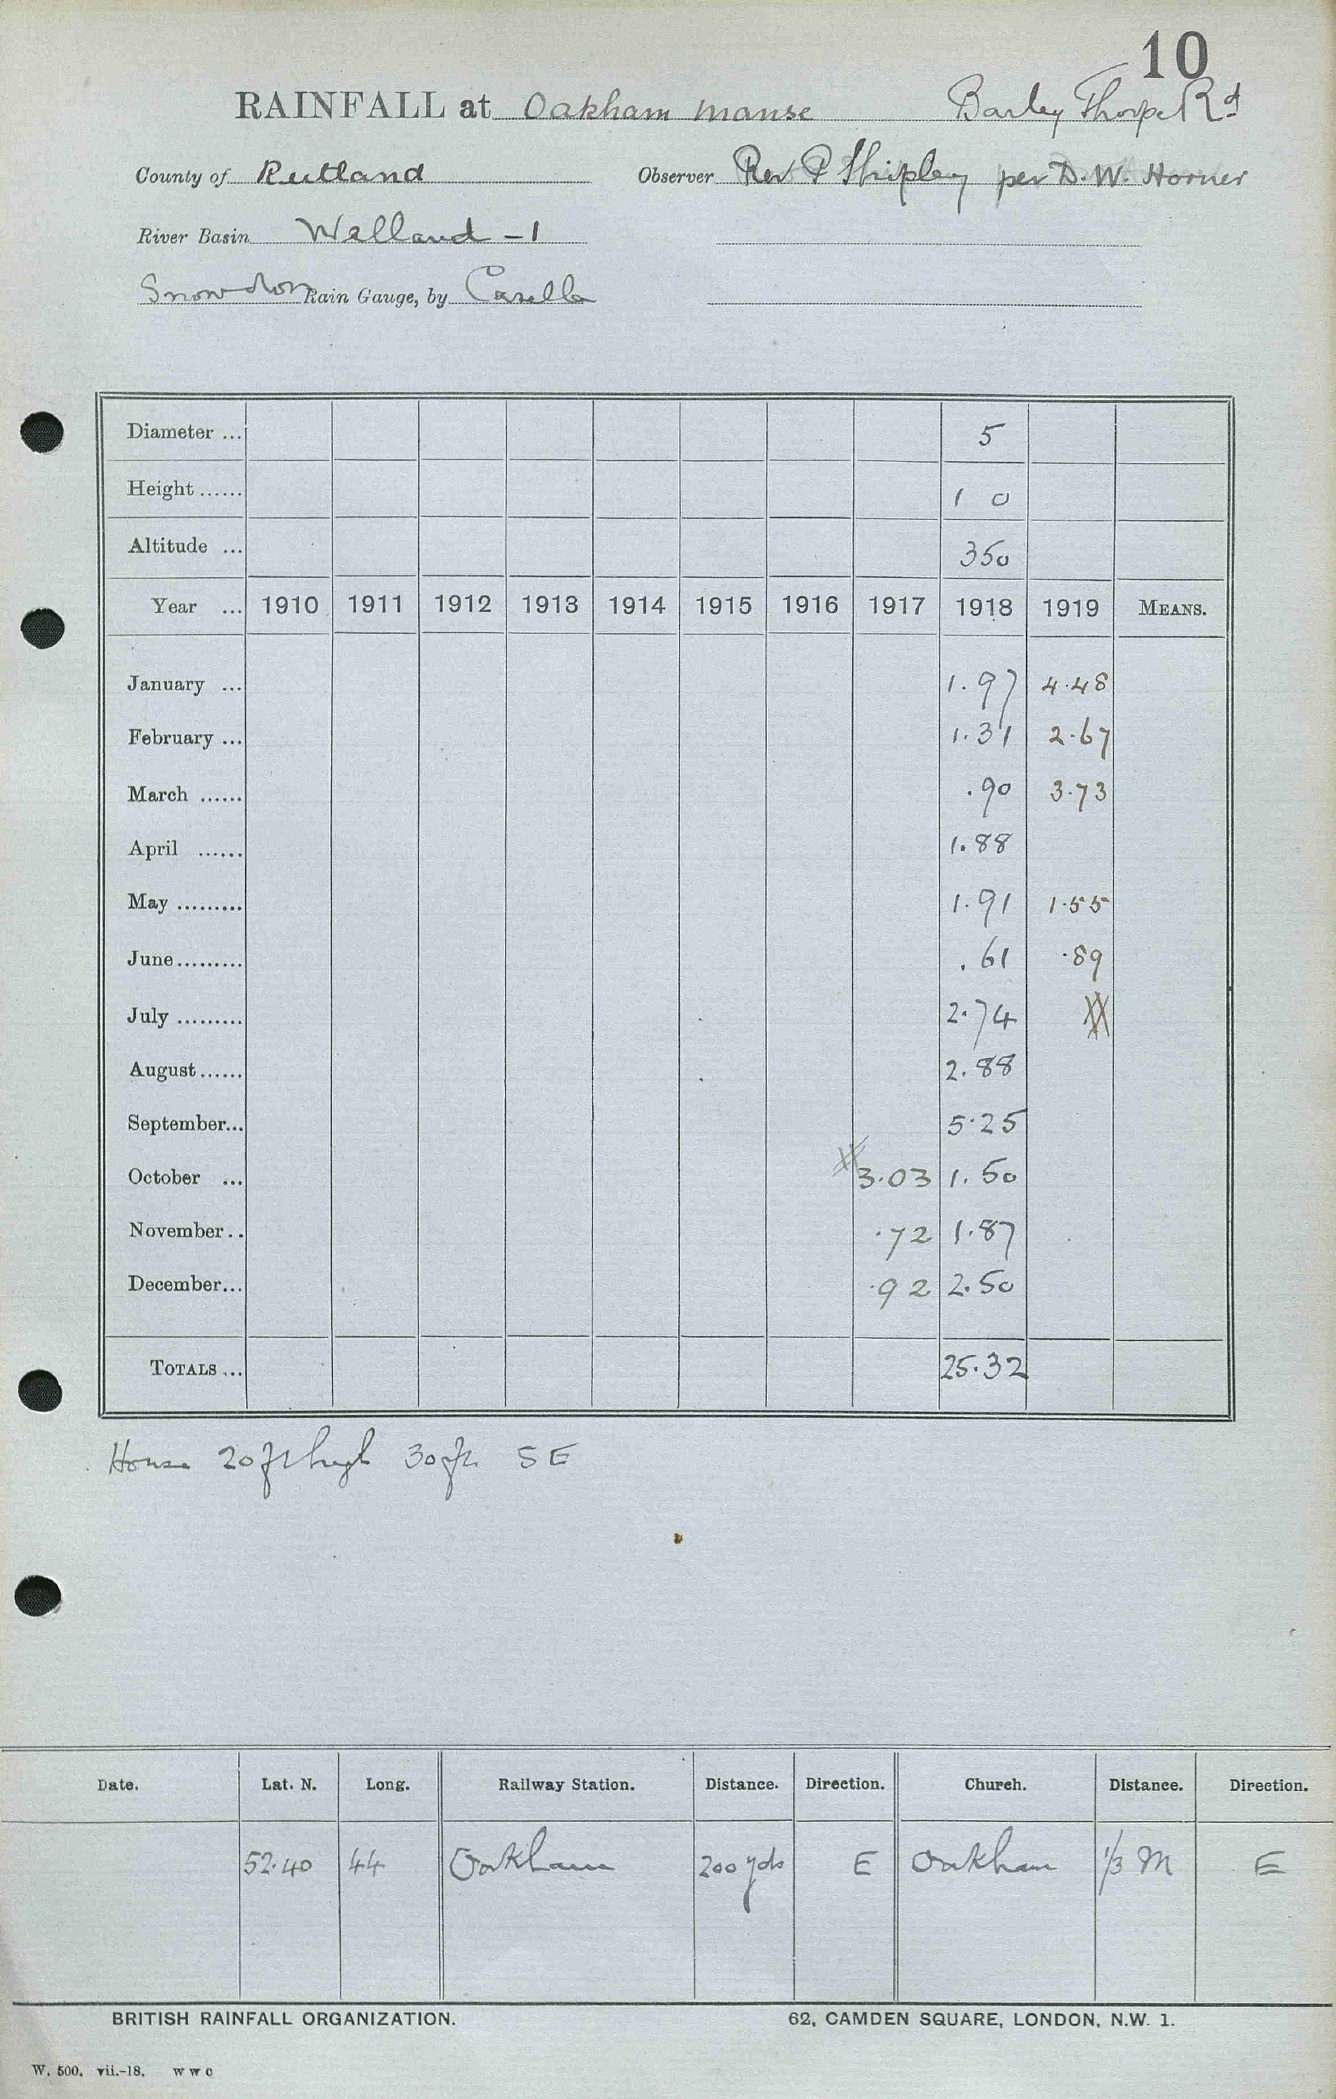 10
RAINFALL at Oakham Manse Barley Thorpe Rd
County of Rutland Observer Rev P Shipley per D. W. Horner
River Basin Welland - 1
Snowdon Rain Gauge, by Casella
Diameter ... 5
Height ...... 1 0
Altitude ... 350
Year ... 1910 1911 1912 1913 1914 1915 1916 1917 1918 1919 MEANS.
January ... 1.97 4.48
February ... 1.31 2.67
March ...... .90 3.73
April ...... 1.88
May ......... 1.91 1.55
June ......... .61 .89
July ......... 2.74
August ...... 2.88
September... 5.25
October ... 3.03 1.50
November .. .72 1.87
December... .92 2.50
TOTALS ... 25.32
House 20 ft high 30 ft SE
Date. Lat. N. Long. Railway Station. Distance. Direction. Church. Distance. Direction.
52.40 44 Oakham 200 yds E Oakham 1/3 M E
BRITISH RAINFALL ORGANIZATION. 62, CAMDEN SQUARE, LONDON, N.W. 1.
W. 500. vii.-18. W W C